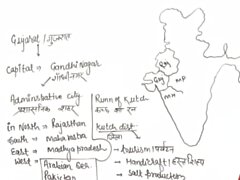 Gujarat / गुजरात
Capital ⇒ Gandhinagar
गांधीनगर
Administrative city
प्रशासनिक शहर
in North ⇒ Rajasthan
South ⇒ Maharastra
East ⇒ Madhya pradesh
West ⇒ Arabian Sea
Pakistan
Runn of Kutch
कच्छ का रन
Kutch dist.
→ Tourism
→ Handicraft
→ Salt production
GJ
RJ
MP
MH